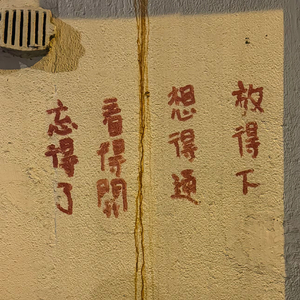 放得下
想得通
看得開
忘得了